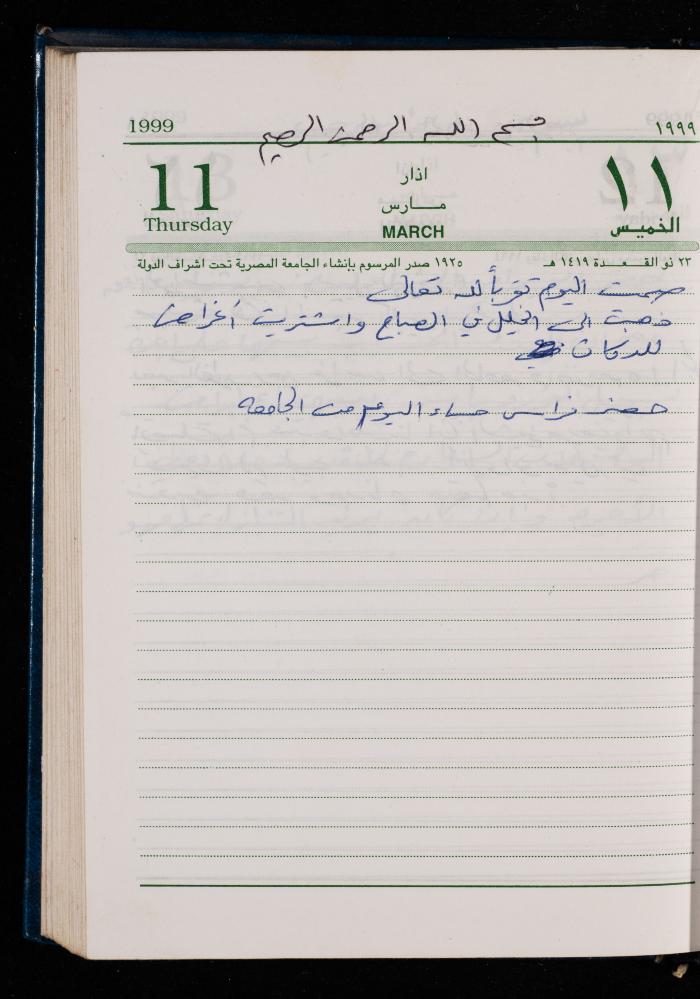 بسم الله الرحمن الرحيم
1999 ١٩٩٩
11 اذار ١١
Thursday مـــارس الخميس
MARCH
٢٣ ذو القـــعـــدة ١٤١٩ هـ ١٩٢٥ صدر المرسوم بإنشاء الجامعة المصرية تحت اشراف الدولة
صمت اليوم تقرباً لله تعالى
ذهبت الى الخليل في الصباح واشتريت أغراض
للدكان
حضر فراس مساء اليوم من الجامعه